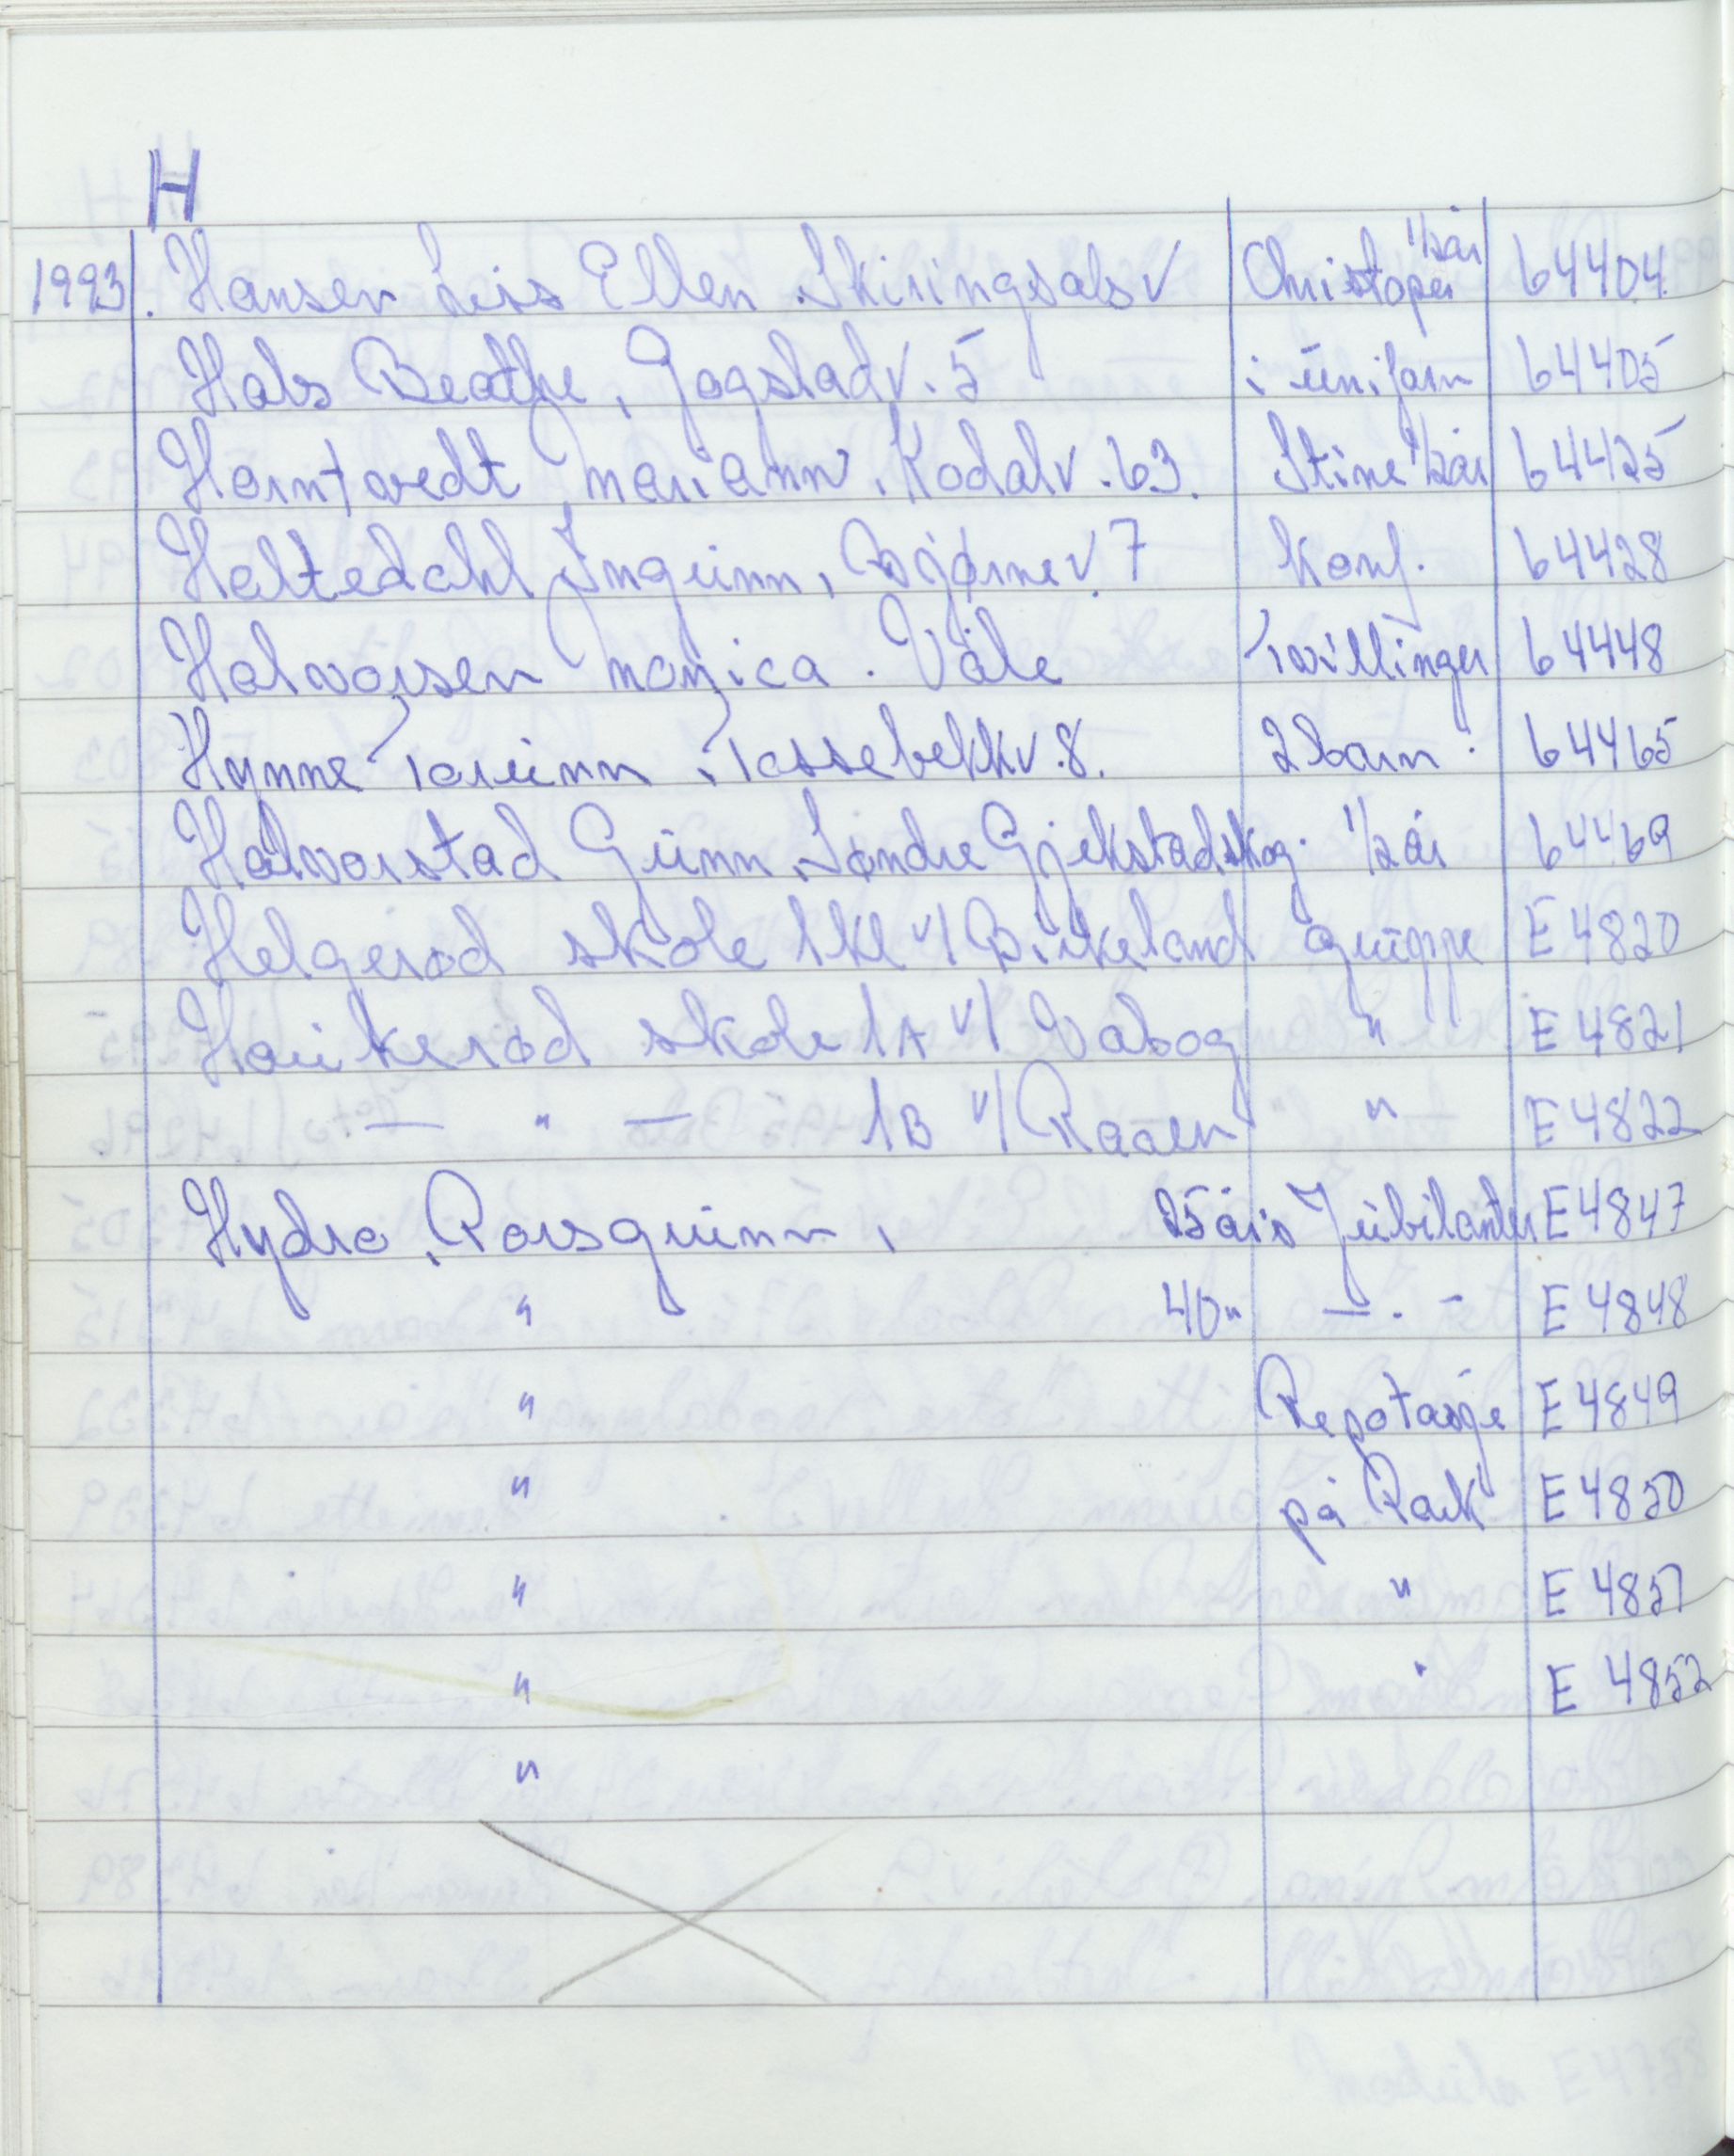 H
1993. Hansen Liss Ellen. Skiringsalsv Christoper 1/2 år 64404.
Hals Beathe, Gogstadv. 5 i uniform 64405
Horntvedt Mariann. Kodalv. 63. Stine 1/2 år 64425
Holtedahl Ingunn, Bjørnev. 7 Konf. 64428
Halvorsen Monica. Våle Tvillinger 64448
Hynne Torunn. Tassebekkv. 8. 2 barn. 64465
Halvorstad Gunn, Søndre Gjekstadskog. 1/2 år 64469
Helgerød skole 1 kl v/ Birkeland gruppe E 4820
Haukerød skole 1A v/ Vabog " E 4821
— " — 1B v/ Raaen " E 4822
Hydro, Porsgrunn, 25 års Jubilanter E 4847
" 40 " — . - E 4848
" Repotasje E 4849
" på Park E 4850
" " E 4851
" " E 4852
"